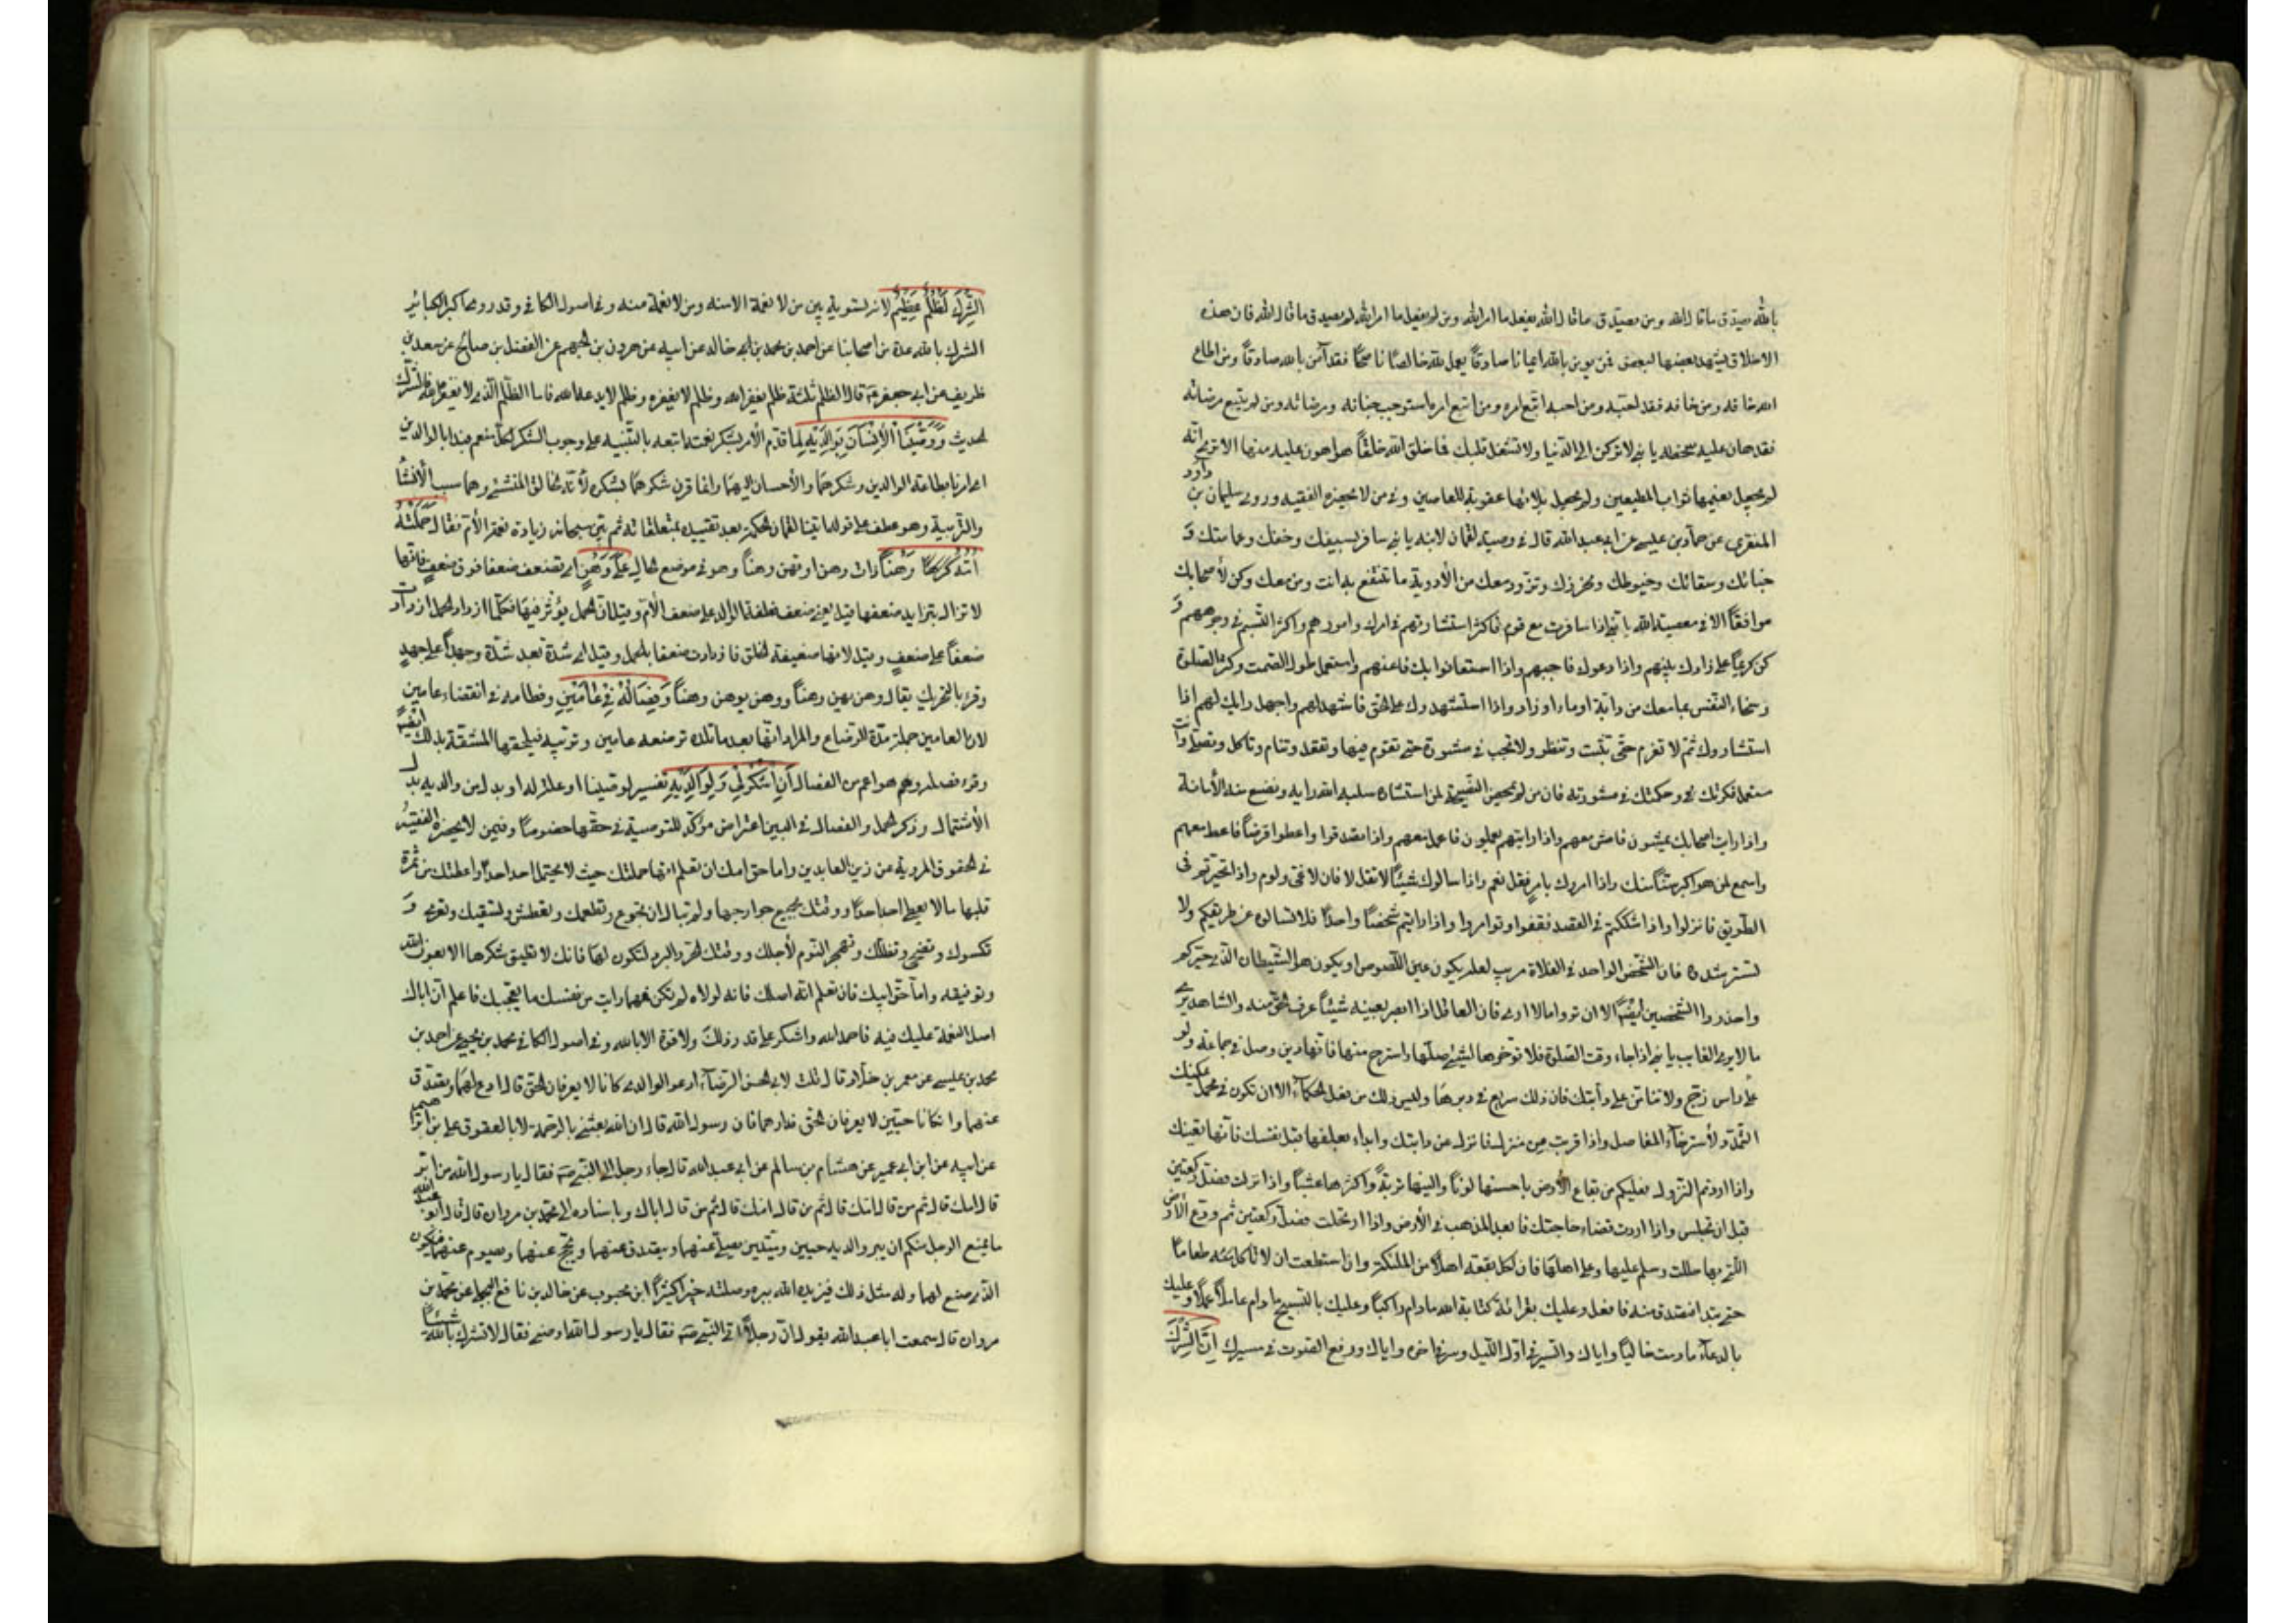 بالله يصدق ما قال الله ومن يصدق ما قال الله يفعل ما امر الله ومن لم يفعل ما امر الله لم يصدق ما قال الله فان هذه
الاخلاق يشهد بعضها لبعض فمن يومن بالله ايمانا صادقاً يعمل لله خالصاً ناصحاً فقد آمن بالله صادقاً ومن اطاع
الله خافه ومن خافه فقد احبّه ومن احبه اتبع امره ومن اتبع امره استوجب جنانه ومرضاته ومن لم يتبع مرضاته
فقد هان عليه سخطه يا بني لا تركن الى الدنيا ولا تشغل قلبك فما خلق الله خلقاً هو اهون عليه منها الا ترى انه
لم يجعل نعيمها ثواب المطيعين ولم يجعل بلائها عقوبة للعاصين وفي من لا يحضره الفقيه وروى سليمان بن داود
المنقري عن حماد بن عيسى عن ابي عبد الله قال في وصية لقمان لابنه يا بني سافر بسيفك وخفك وعمامتك و
خبائك وسقائك وخيوطك ومخرزك وتزود معك من الأدوية ما تنتفع به انت ومن معك وكن لأصحابك
موافقاً الا في معصية الله يا بني اذا سافرت مع قوم فاكثر استشارتهم في امرك وامورهم واكثر التبسم في وجوههم و
كن كريماً على زادك بينهم واذا دعوك فاجبهم واذا استعانوا بك فاعنهم واستعمل طول الصمت وكثرة الصلوة
وسخاء النفس بما معك من دابة او ماء او زاد واذا استشهدوك على الحق فاشهد لهم واجهد رايك لهم اذا
استشاروك ثم لا تعزم حتى تثبت وتنظر ولا تجب في مشورة حتى تقوم فيها وتقعد وتنام وتاكل وتصلي وانت
مستعمل فكرتك وحكمتك في مشورته فان من لم يمحض النصيحة لمن استشاره سلبه الله رايه ونزع منه الأمانة
واذا رايت اصحابك يمشون فامش معهم واذا رايتهم يعملون فاعمل معهم واذا تصدقوا واعطوا قرضاً فاعط معهم
واسمع لمن هو اكبر سناً منك واذا امروك بامر فقل نعم واذا سالوك شيئاً لا تقل لا فان لا عيّ ولوم واذا تحيرتم في
الطريق فانزلوا واذا شككتم في القصد فقفوا وتوامروا واذا رايتم شخصاً واحداً فلا تسالوه عن طريقكم ولا
تسترشدوه فان الشخص الواحد في الفلاة مريب لعله يكون عين اللصوص او يكون هو الشيطان الذي حيركم
واحذروا الشخصين ايضاً الا ان تروا ما لا ارى فان العاقل اذا ابصر بعينه شيئاً عرف الحق منه والشاهد يرى
ما لا يرى الغايب يا بني اذا جاء وقت الصلوة فلا توخرها لشيء صلها واسترح منها فانها دين وصل في جماعة ولو
على راس زج ولا تنامن على دابتك فان ذلك سريع في دبرها وليس ذلك من فعل الحكماء الا ان تكون في محمل يمكنك
التمدد لأسترخاء المفاصل واذا قربت من منزلك فانزل عن دابتك وابدء بعلفها قبل نفسك فانها نفسك
واذا اردتم النزول فعليكم من بقاع الأرض باحسنها لوناً والينها تربةً واكثرها عشباً واذا نزلت فصل ركعتين
قبل ان تجلس واذا اردت قضاء حاجتك فابعد المذهب في الأرض واذا ارتحلت فصل ركعتين ثم ودع الأرض
التي حللت بها وسلم عليها وعلى اهلها فان لكل بقعة اهلاً من الملئكة وان استطعت ان لا تاكل طعاماً
حتى تبدا فتصدق منه فافعل وعليك بقرائة كتاب الله ما دام راكباً وعليك بالتسبيح ما دام عاملاً عملاً وعليك
بالدعاء ما دمت خالياً واياك والسير في اول الليل وسر في اخره واياك ورفع الصوت في مسيرك إنّ الشّرك
الشرك لظلم عظيم لانه تسوية بين من لا نعمة الا منه ومن لا نعمة منه وفي اصول الكافي وقد روى اكبر الكبائر
الشرك بالله عدة من اصحابنا عن احمد بن محمد بن خالد عن ابيه عن هرون بن الجهم عن المفضل بن صالح عن سعد بن
ظريف عن ابي جعفر قال الظلم ثلثة ظلم يغفره الله وظلم لا يغفره وظلم لا يدعه الله فاما الظلم الذي لا يغفره فالشرك
الحديث ووصينا الإنسان بوالديه لما قدم الأمر بشكر نعمته اتبعه بالتنبيه على وجوب الشكر لكل منعم فبدا بالوالدين
اي امرناه بطاعة الوالدين وشكرهما والأحسان اليهما وانما قرن شكرهما بشكره لأنه الخالق المنشئ وهما سبب الأنشاء
والتربية وهو عطف على قوله اتينا لقمان الحكمة بعد تقييده بمتعلقاته ثم بين سبحانه زيادة نعمة الأم فقال حملته
امه وهناً ذات وهن او تهن وهناً وهو في موضع الحال على وهن اي تضعف ضعفا فوق ضعف فانها
لا تزال يتزايد ضعفها قيل يعني ضعف نطفة الوالد على ضعف الأم وقيل لان الحمل يؤثر فيها فكلما ازداد الحمل ازدادت
ضعفاً على ضعف وقيل لانها ضعيفة الخلق فازدادت ضعفا بالحمل وقيل اي شدة بعد شدة وجهداً على جهد
وقرء بالتحريك يقال وهن يهن وهناً ووهن يوهن وهناً وفصاله في عامين وفطامه في انقضاء عامين
لان العامين جملة مدة الرضاع والمراد انها بعد ما تلده ترضعه عامين وتربيه فيلحقها المشقة بذلك ايضاً
وقرء فصله وهو اعم من الفصال أن اشكر لي ولوالديك تفسير لوصينا او علة له او بدل من والديه بدل
الأشتمال وذكر الحمل والفصال في البين اعتراض مؤكد للتوصية في حقها خصوصاً وفي من لا يحضره الفقيه
في الحقوق المروية عن زين العابدين واما حق امك ان تعلم انها حملتك حيث لا يحتمل احد احداً واعطتك من ثمرة
قلبها ما لا يعطي احد احداً ووقتك بجميع جوارحها ولم تبال ان تجوع وتطعمك وتعطش وتسقيك وتعرى و
تكسوك وتضحى وتظلك وتهجر النوم لأجلك ووقتك الحر والبرد لتكون لها فانك لا تطيق شكرها الا بعون الله
وتوفيقه واما حق ابيك فان تعلم انه اصلك فانه لولاه لم تكن فمهما رايت من نفسك ما يعجبك فاعلم ان اباك
اصل النعمة عليك فيه فاحمد الله واشكره على قدر ذلك ولا قوة الا بالله وفي اصول الكافي محمد بن يحيى عن احمد بن
محمد بن عيسى عن معمر بن خلاد قال قلت لابي الحسن الرضا ادعو لوالدي كانا لا يعرفان الحق قال ادع لهما وتصدق
عنهما وان كانا حيين لا يعرفان الحق فدارهما فان رسول الله قال ان الله بعثني بالرحمة لا بالعقوق علي بن ابراهيم
عن ابيه عن ابن ابي عمير عن هشام بن سالم عن ابي عبد الله قال جاء رجل الى النبي فقال يا رسول الله من ابر
قال امك قال ثم من قال امك قال ثم من قال امك قال ثم من قال اباك وباسناده الى محمد بن مروان قال قال ابو عبد الله
ما يمنع الرجل منكم ان يبر والديه حيين وميتين يصلي عنهما ويتصدق عنهما ويحج عنهما ويصوم عنهما فيكون
الذي صنع لهما وله مثل ذلك فيزيده الله ببره وصلته خيراً كثيراً ابن محبوب عن خالد بن نافع البجلي عن محمد بن
مروان قال سمعت ابا عبد الله يقول ان رجلاً اتى النبي فقال يا رسول الله اوصني فقال لا تشرك بالله شيئاً